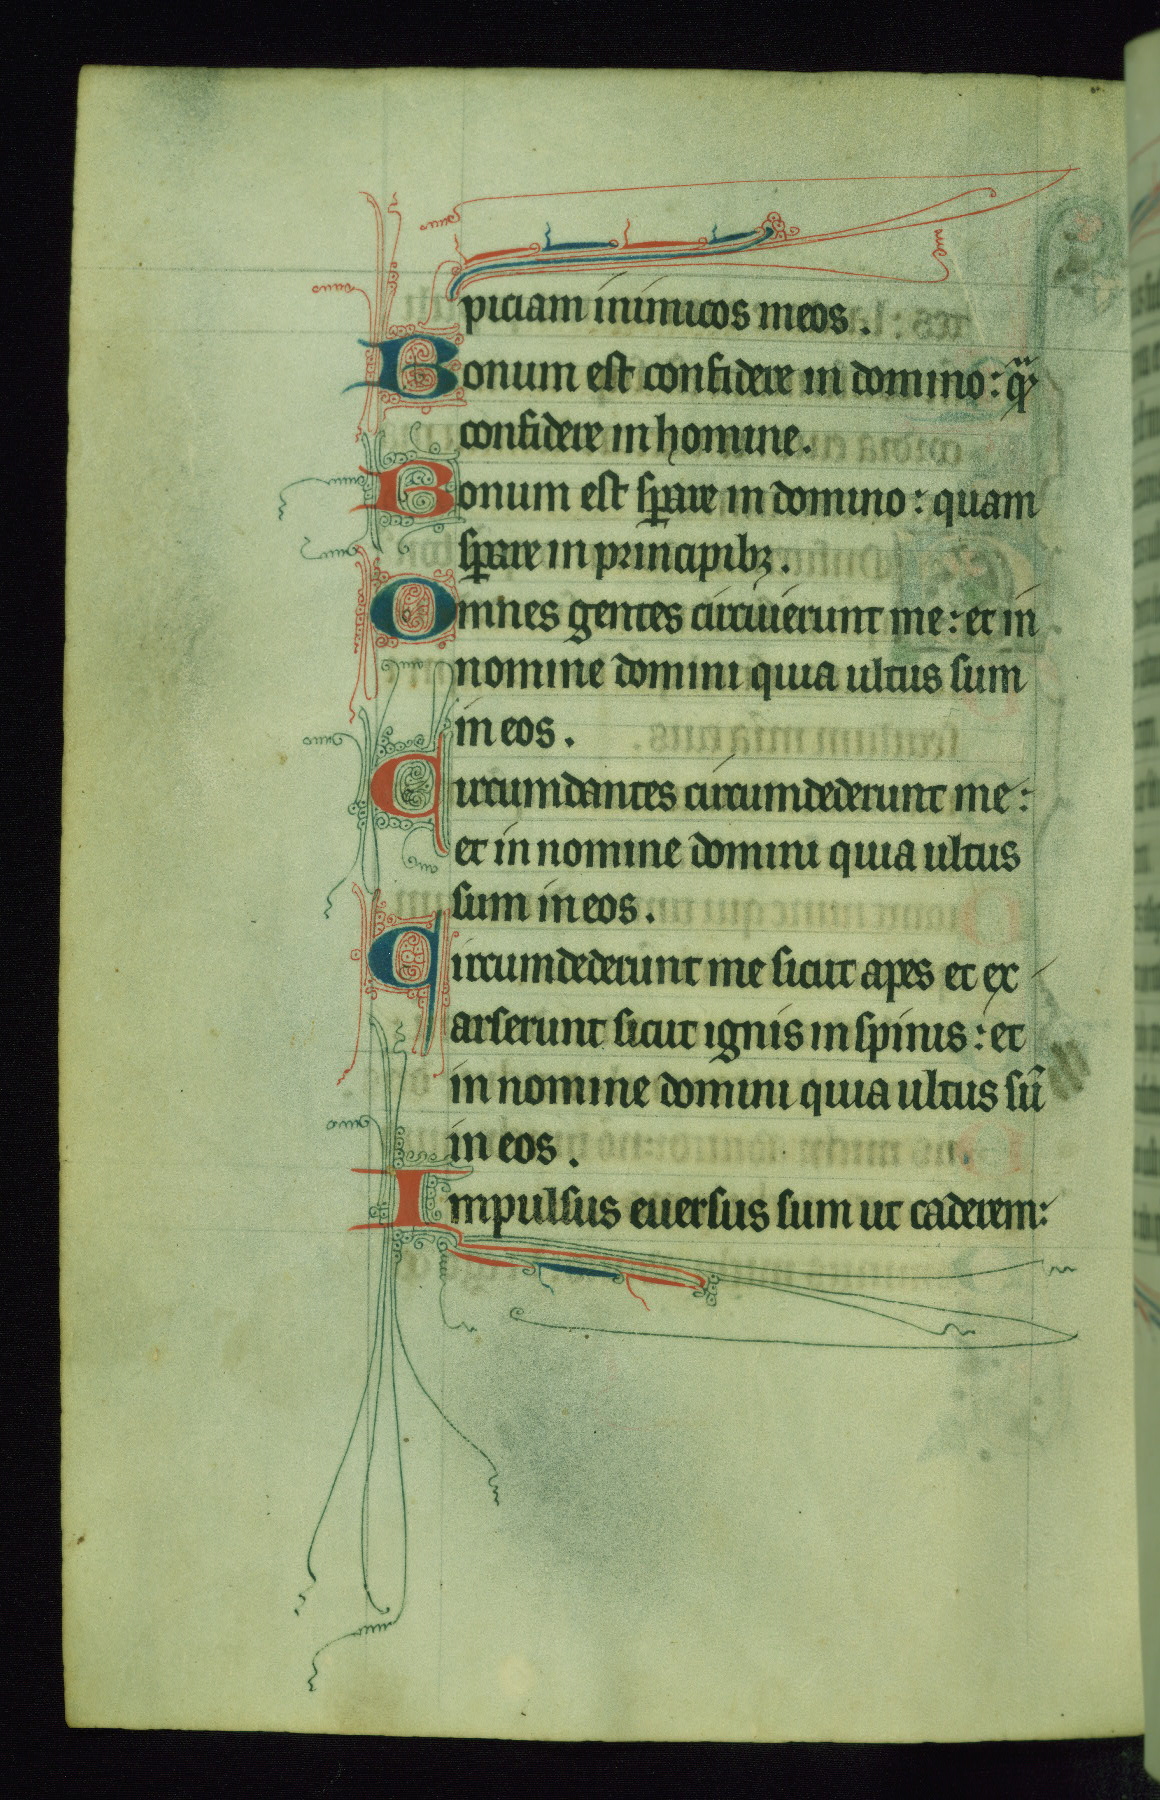 piciam inimicos meos.
Bonum est confidere in domino: qᷓ
confidere in homine.
Bonum est sꝑare in domino: quam
sꝑare in principibꝫ.
Omnes gentes circuierunt me: et in
nomine domini quia ultus sum
in eos.
Circumdantes circumdederunt me:
et in nomine domini quia ultus
sum in eos.
Circumdederunt me sicut apes et ex
arserunt sicut ignis in spinis: et
in nomine domini quia ultus sū
in eos.
Impulsus euersus sum ut caderem: